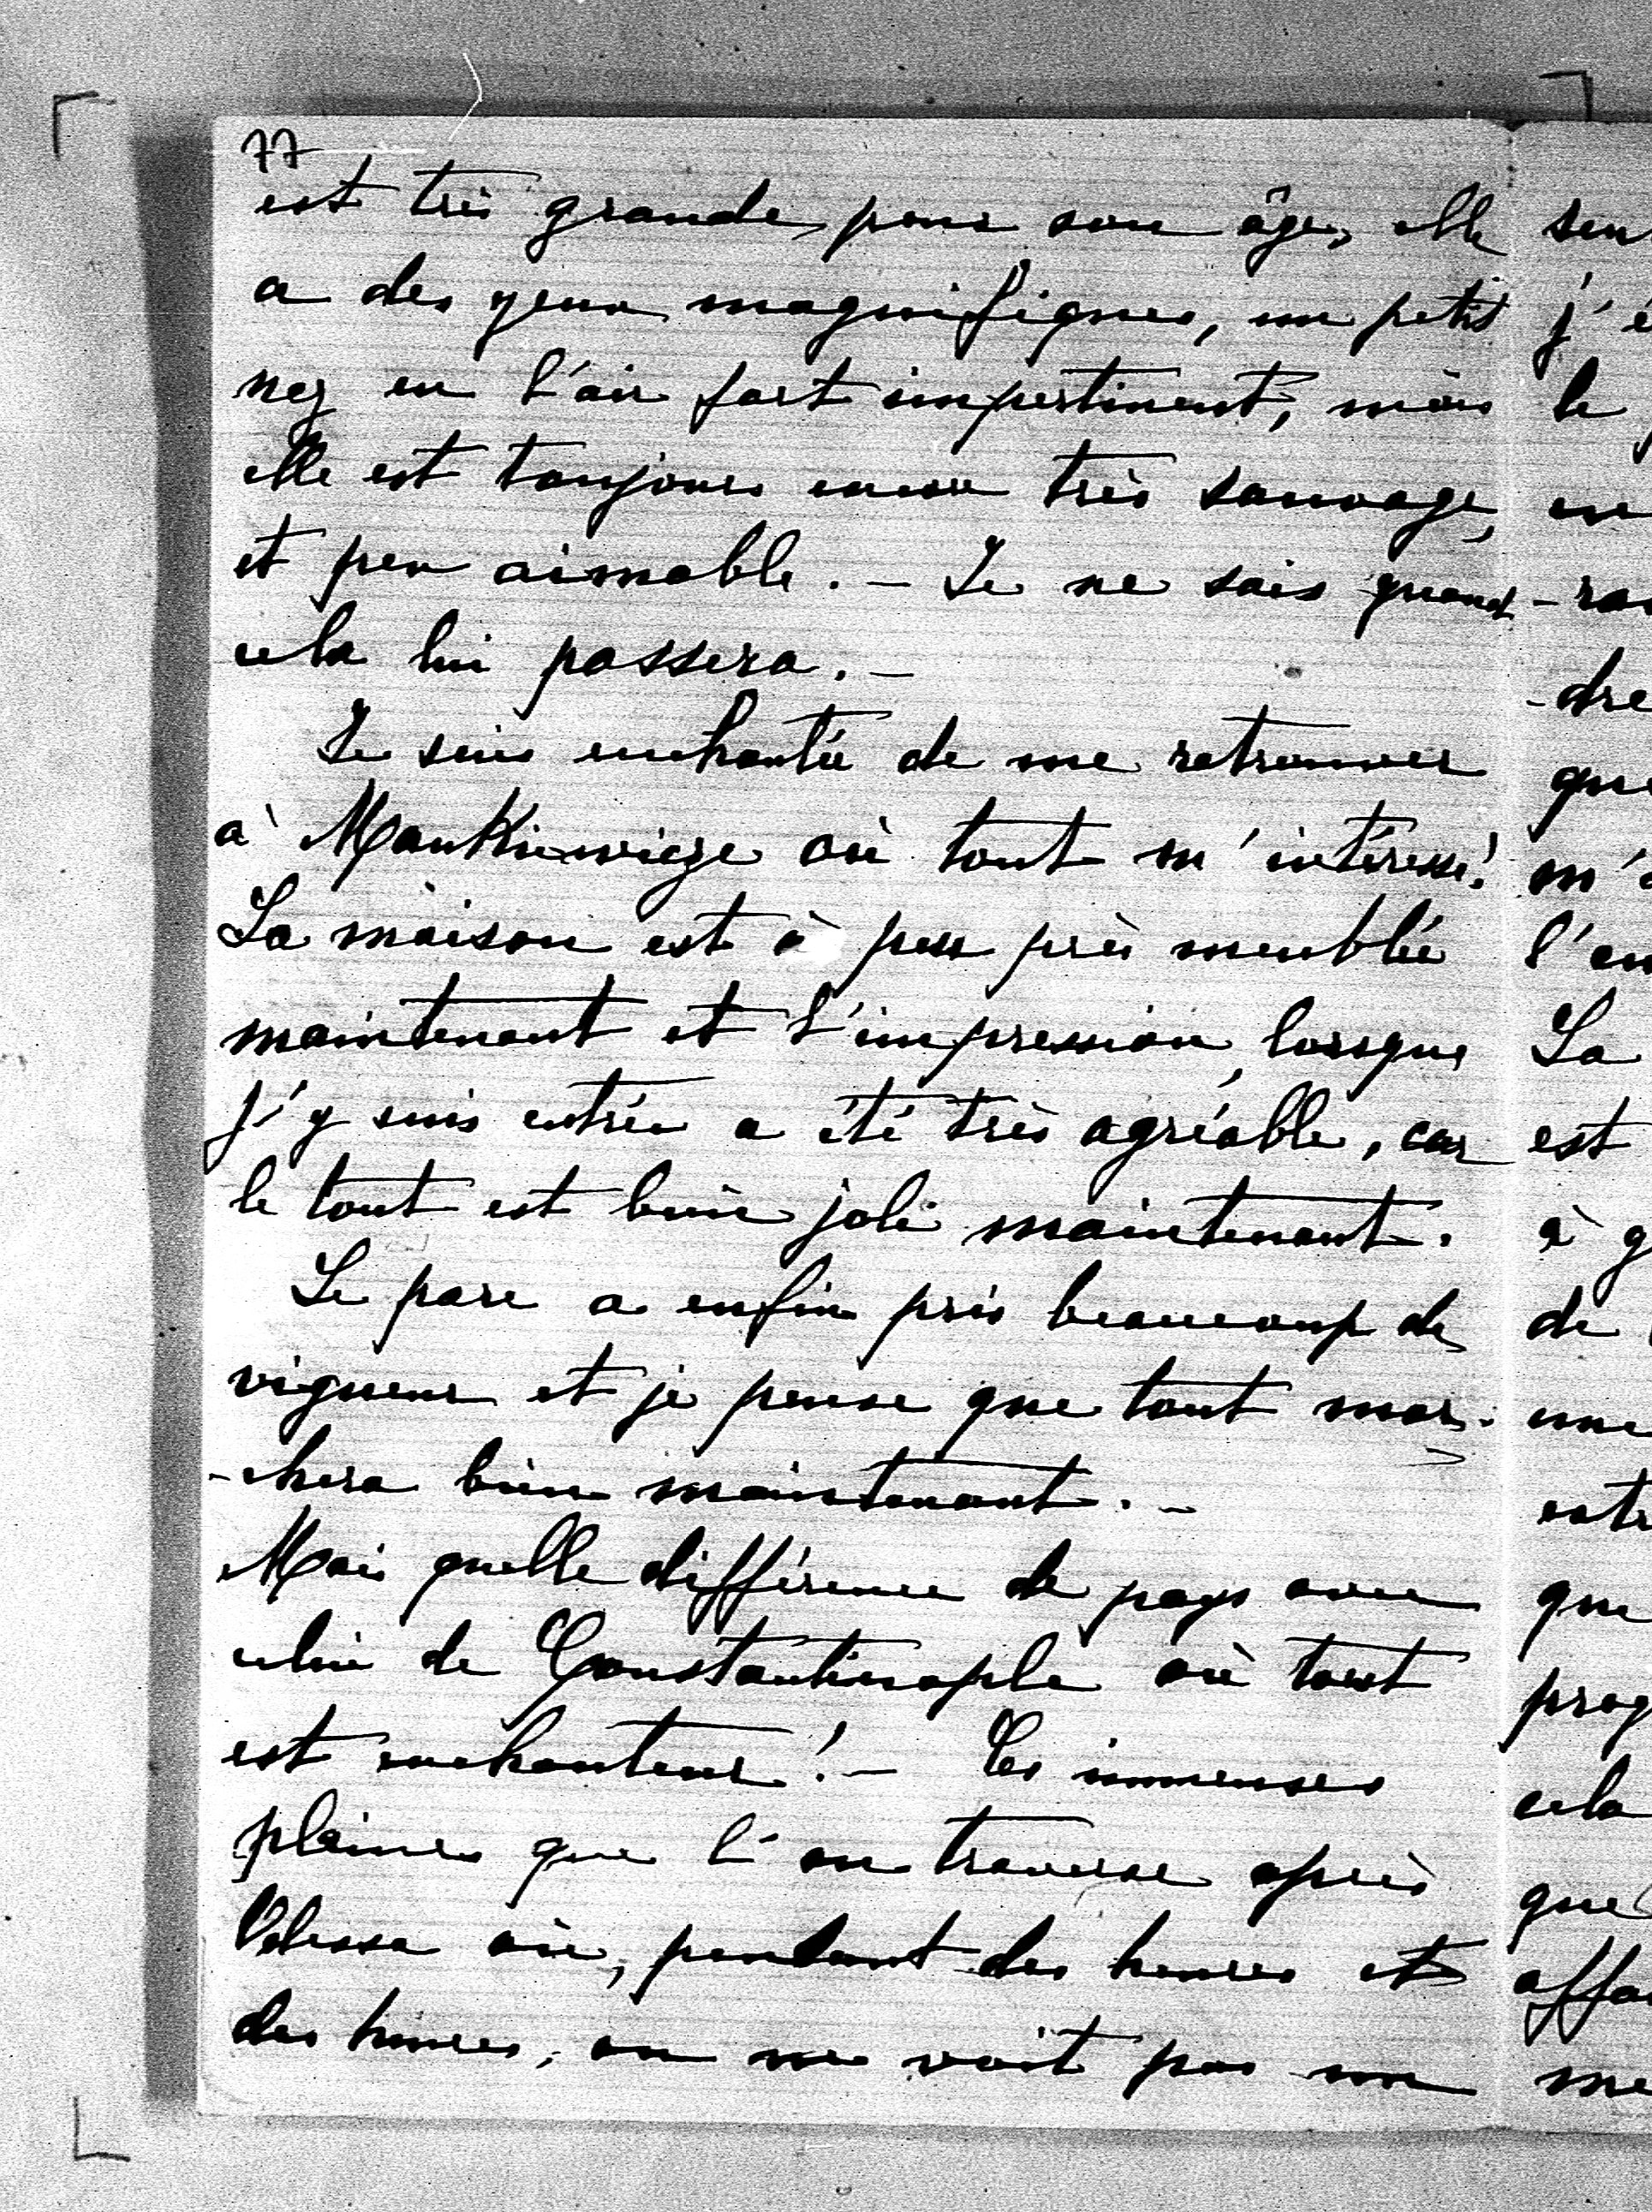 77
est très grande, pour son âge, elle
a des yeux magnifiques, un petit
nez en l'air fort impertinent, mais
elle est toujours encore très sauvage,
et peu aimable. - Je ne sais quand
cela lui passera. -
Je suis enchantée de me retrouver
à Mankiewicze où tout m'intéresse!
La maison est à peu près meublée
maintenant et l'impression, lorsque
j'y suis entrée a été très agréable, car
le tout est bien joli maintenant.
Le parc a enfin pris beaucoup de
vigueur et je pense que tout mar-
-chera bien maintenant. -
Mais quelle différence de pays avec
celui de Constantinople où tout
est enchanteur! - Ces immenses
plaines que l'on traverse après
Odessa où, pendant des heures et
des heures, on ne voit pas un
j'
le
-dre
que
m'
La
est
à g
de
une
que
cela
que